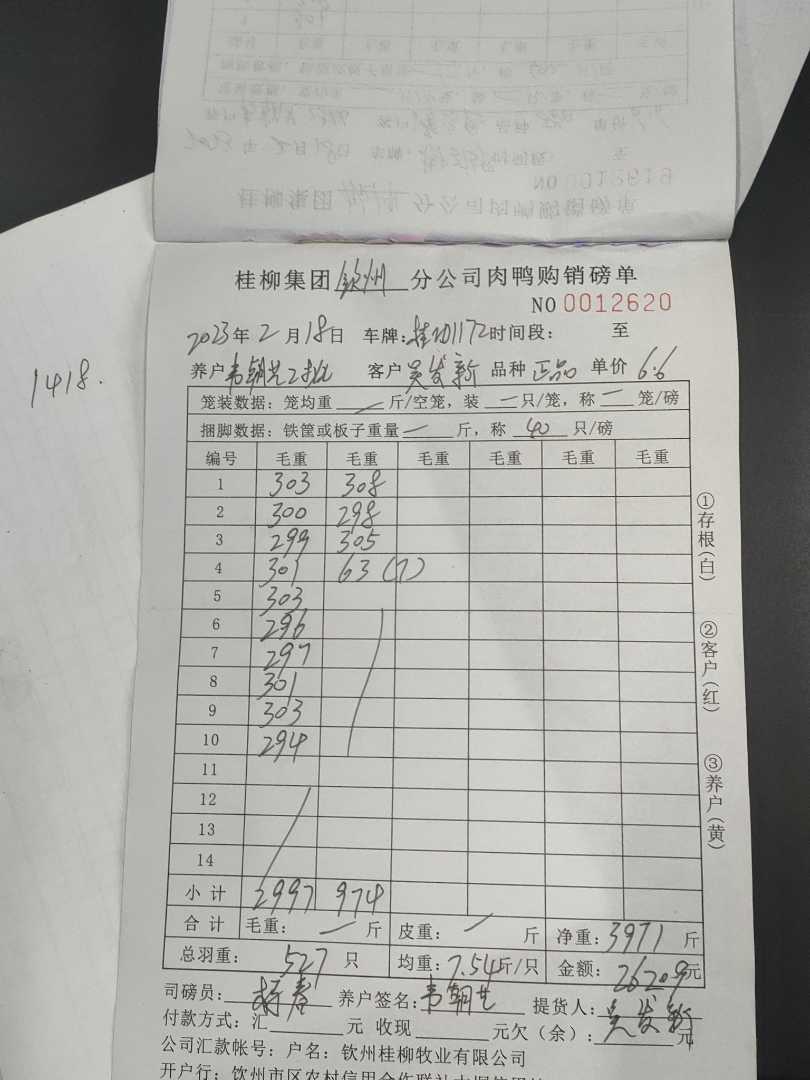 桂柳集团钦州分公司肉鸭购销磅单
NO 0012620
1418.
2023年2月18日 车牌: 1172 时间段: 至
养户 韦朝艺2批 客户 吴发新 品种 正品 单价 6.6
笼装数据: 笼均重 / 斤/空笼, 装 一 只/笼, 称 一 笼/磅
捆脚数据: 铁筐或板子重量 一 斤, 称 40 只/磅
编号 毛重 毛重 毛重 毛重 毛重 毛重
1 303 308
2 300 298
3 299 305
4 301 63 (7)
5 303
6 296
7 297
8 301
9 303
10 294
11
12
13
14
小计 2997 974
合计 毛重: 一 斤 皮重: / 斤 净重: 3971 斤
总羽重: 527 只 均重: 7.54 斤/只 金额: 26209 元
司磅员: 养户签名: 韦朝艺 提货人: 吴发新
付款方式: 汇 元 收现 元欠(余): 元
公司汇款帐号: 户名: 钦州桂柳牧业有限公司
开户行: 钦州市区农村信用合作联社
①存根(白)
②客户(红)
③养户(黄)